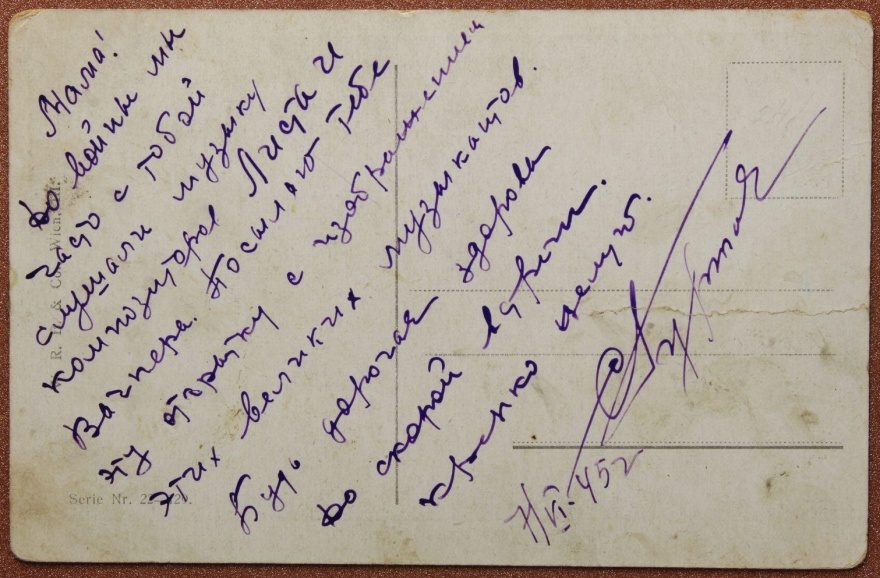 Мама!
До войны мы
часто с тобой
слушали музыку
композиторов Листа и
Вагнера. Посылаю тебе
эту открытку с изображением
этих великих музыкантов.
Будь дорогая здорова
до скорой встречи.
крепко целую.
7/VI-45г
Serie Nr.